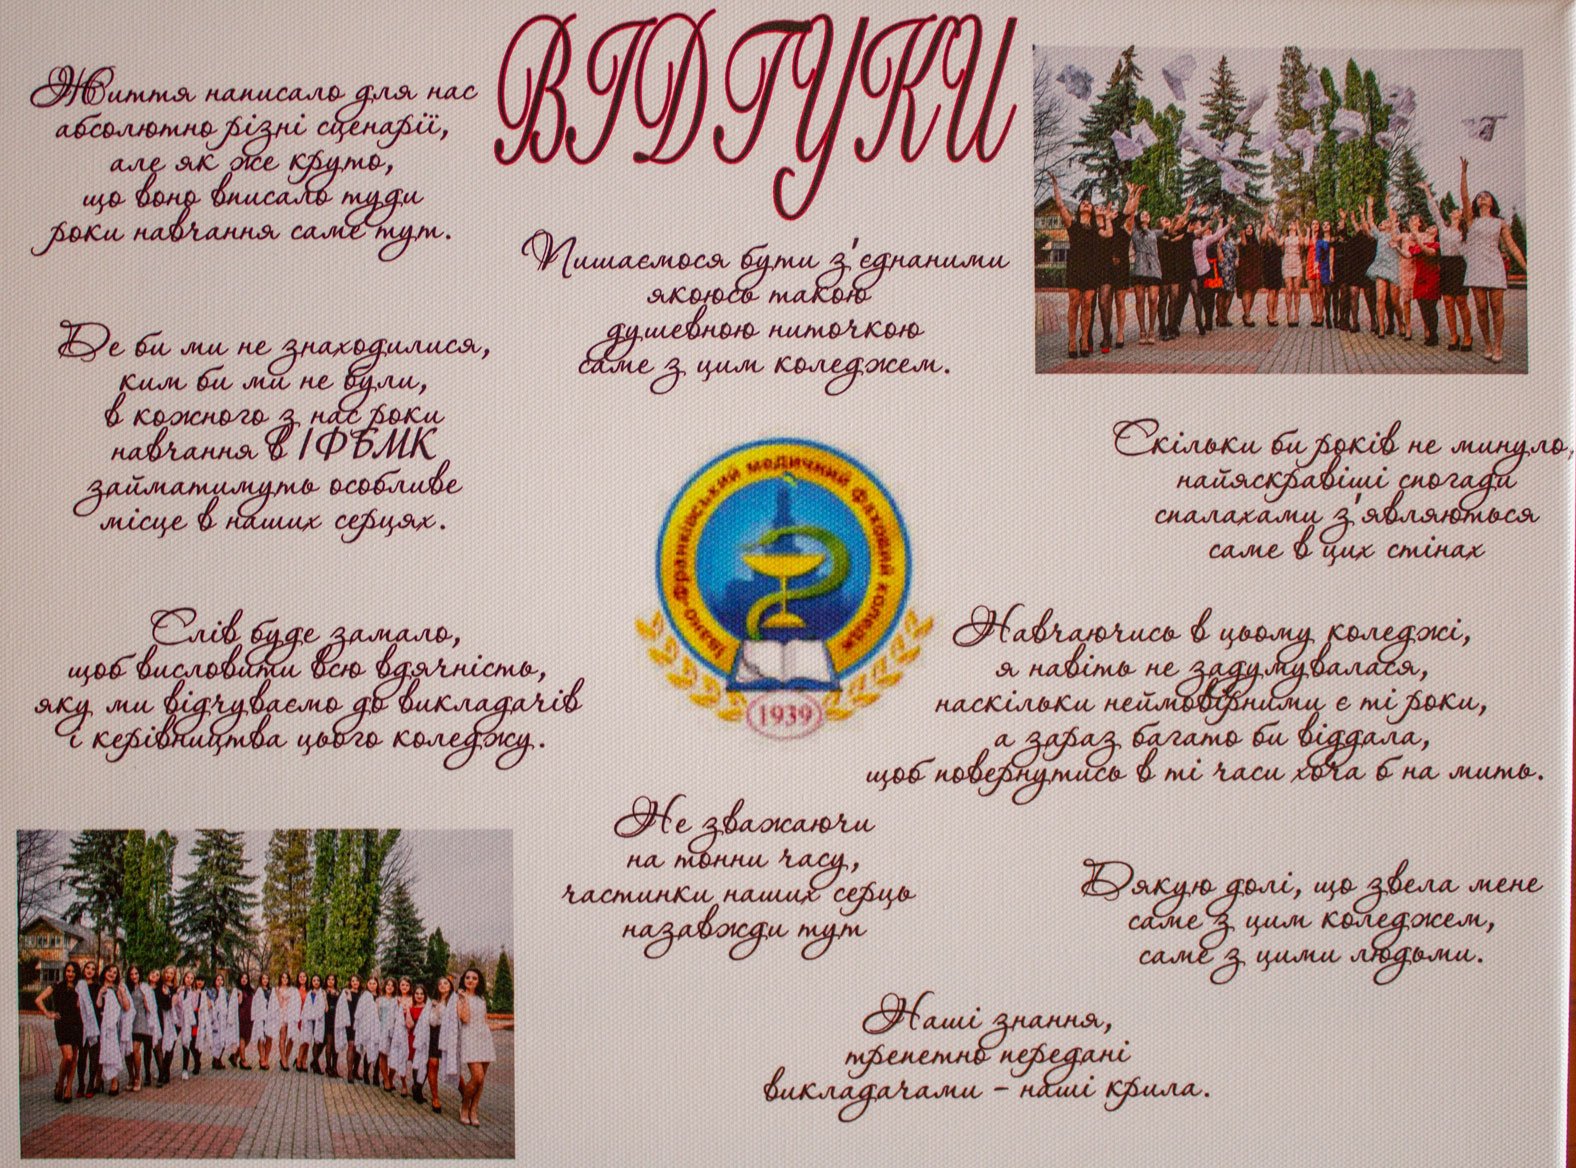 ВІДГУКИ
Життя написало для нас
абсолютно різні сценарії,
але як же круто,
що воно вписало туди
роки навчання саме тут.
Пишаємося бути з'єднаними
якоюсь такою
душевною ниточкою
саме з цим коледжем.
Де би ми не знаходилися,
ким би ми не були,
в кожного з нас роки
навчання в ІФБМК
займатимуть особливе
місце в наших серцях.
Скільки би років не минуло,
найяскравіші спогади
спалахами з'являються
саме в цих стінах
Івано-Франківський медичний фаховий коледж
1939
Слів буде замало,
щоб висловити всю вдячність,
яку ми відчуваємо до викладачів
і керівництва цього коледжу.
Навчаючись в цьому коледжі,
я навіть не задумувалася,
наскільки неймовірними є ті роки,
а зараз багато би віддала,
щоб повернутись в ті часи хоча б на мить.
Не зважаючи
на тонни часу,
частинки наших серць
назавжди тут
Дякую долі, що звела мене
саме з цим коледжем,
саме з цими людьми.
Наші знання,
трепетно передані
викладачами - наші крила.